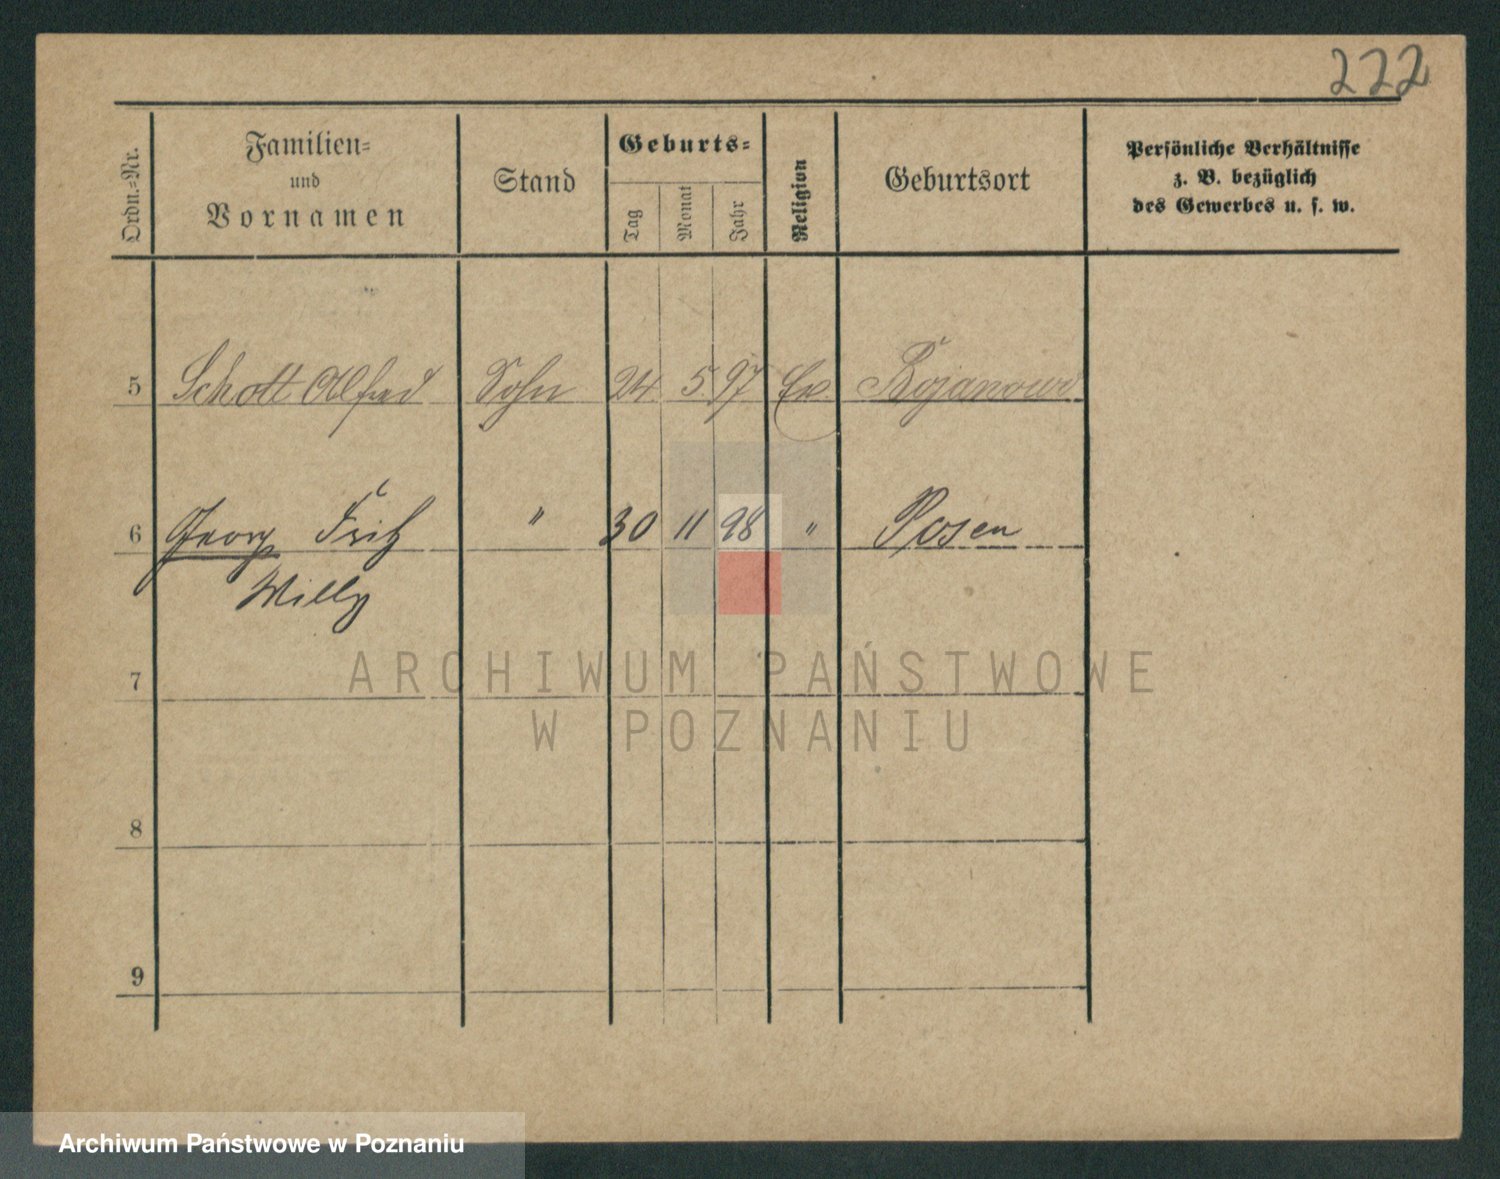 222
Ordn.-Nr.
Familien-
und
Vornamen
Stand
Geburts-
Tag
Monat
Jahr
Religion
Geburtsort
Persönliche Verhältnisse
z. B. bezüglich
des Gewerbes u. s. w.
5 Schott Alfred Sohn 24 5 97 Ev. Bojanowo
6 Georg Fritz " 30 11 98 " Posen
Willy
7
8
9
ARCHIWUM PAŃSTWOWE
W POZNANIU
Archiwum Państwowe w Poznaniu